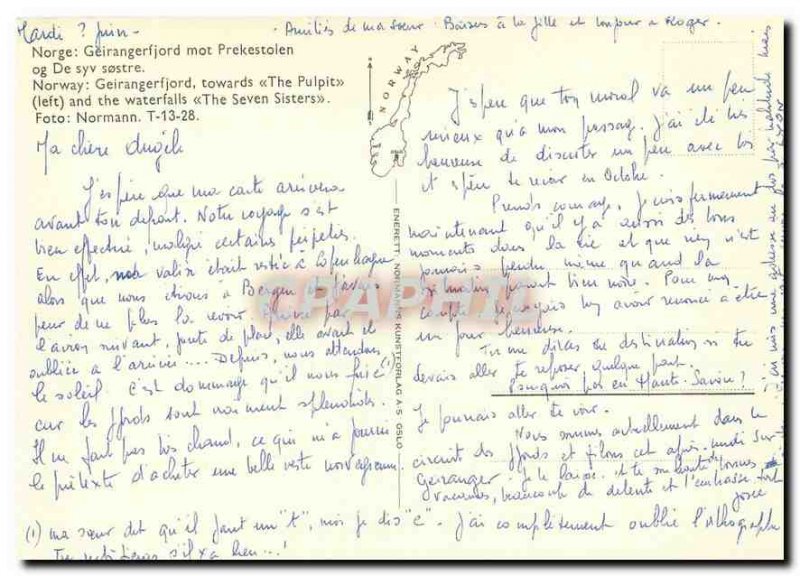 Mardi ? juin -
Amitiés de ma sœur. Baisers à ta fille et toujour à Roger.
Norge: Geirangerfjord mot Prekestolen
og De syv søstre.
Norway: Geirangerfjord, towards «The Pulpit»
(left) and the waterfalls «The Seven Sisters».
Foto: Normann. T-13-28.
NORWAY
ENERETT NORMANNS KUNSTFORLAG A·S OSLO
CPAPHIL
Ma chère Angèle
J'espère que ma carte arrivera
avant ton départ. Notre voyage s'est
bien effectué, malgré certains péripéties.
En effet, valise était restée à Copenhague
alors que nous étions à Bergen et j'avais
peur de ne plus la revoir. par
l'avion suivant, de plus, elle avait été
oubliée à l'arrivée.... Depuis, nous attendons
le soleil. C'est dommage qu'il nous fuie (1)
car les fjords sont vraiment splendides.
Il ne fait pas très chaud, ce qui m'a fourni
le prétexte d'acheter une belle veste norvégienne.
(1) ma sœur dit qu'il faut un "t", moi je dis "e". J'ai complètement oublié l'orthographe
J'espère que ton moral va un peu
mieux qu'à mon passage. J'ai été très
heureuse de discuter un peu avec toi
et espère te revoir en Octobre.
Prends courage, je crois fermement
maintenant qu'il y a aussi des bons
moments dans la vie et que rien n'est
jamais perdu, même quand la
paraît bien noire. Pour mon
compte, je croyais bien avoir renoncé à être
un jour heureuse.
Tu me diras ta destination si tu
devais aller te reposer quelque part.
Pourquoi pas en Haute-Savoie ?
Je pourrais aller te voir.
Nous sommes actuellement dans le
circuit des fjords et filons cet après-midi sur
Geiranger. Je te laisse et te souhaite de bonnes
vacances, beaucoup de détente et t'embrasse fort
Josée
LYON